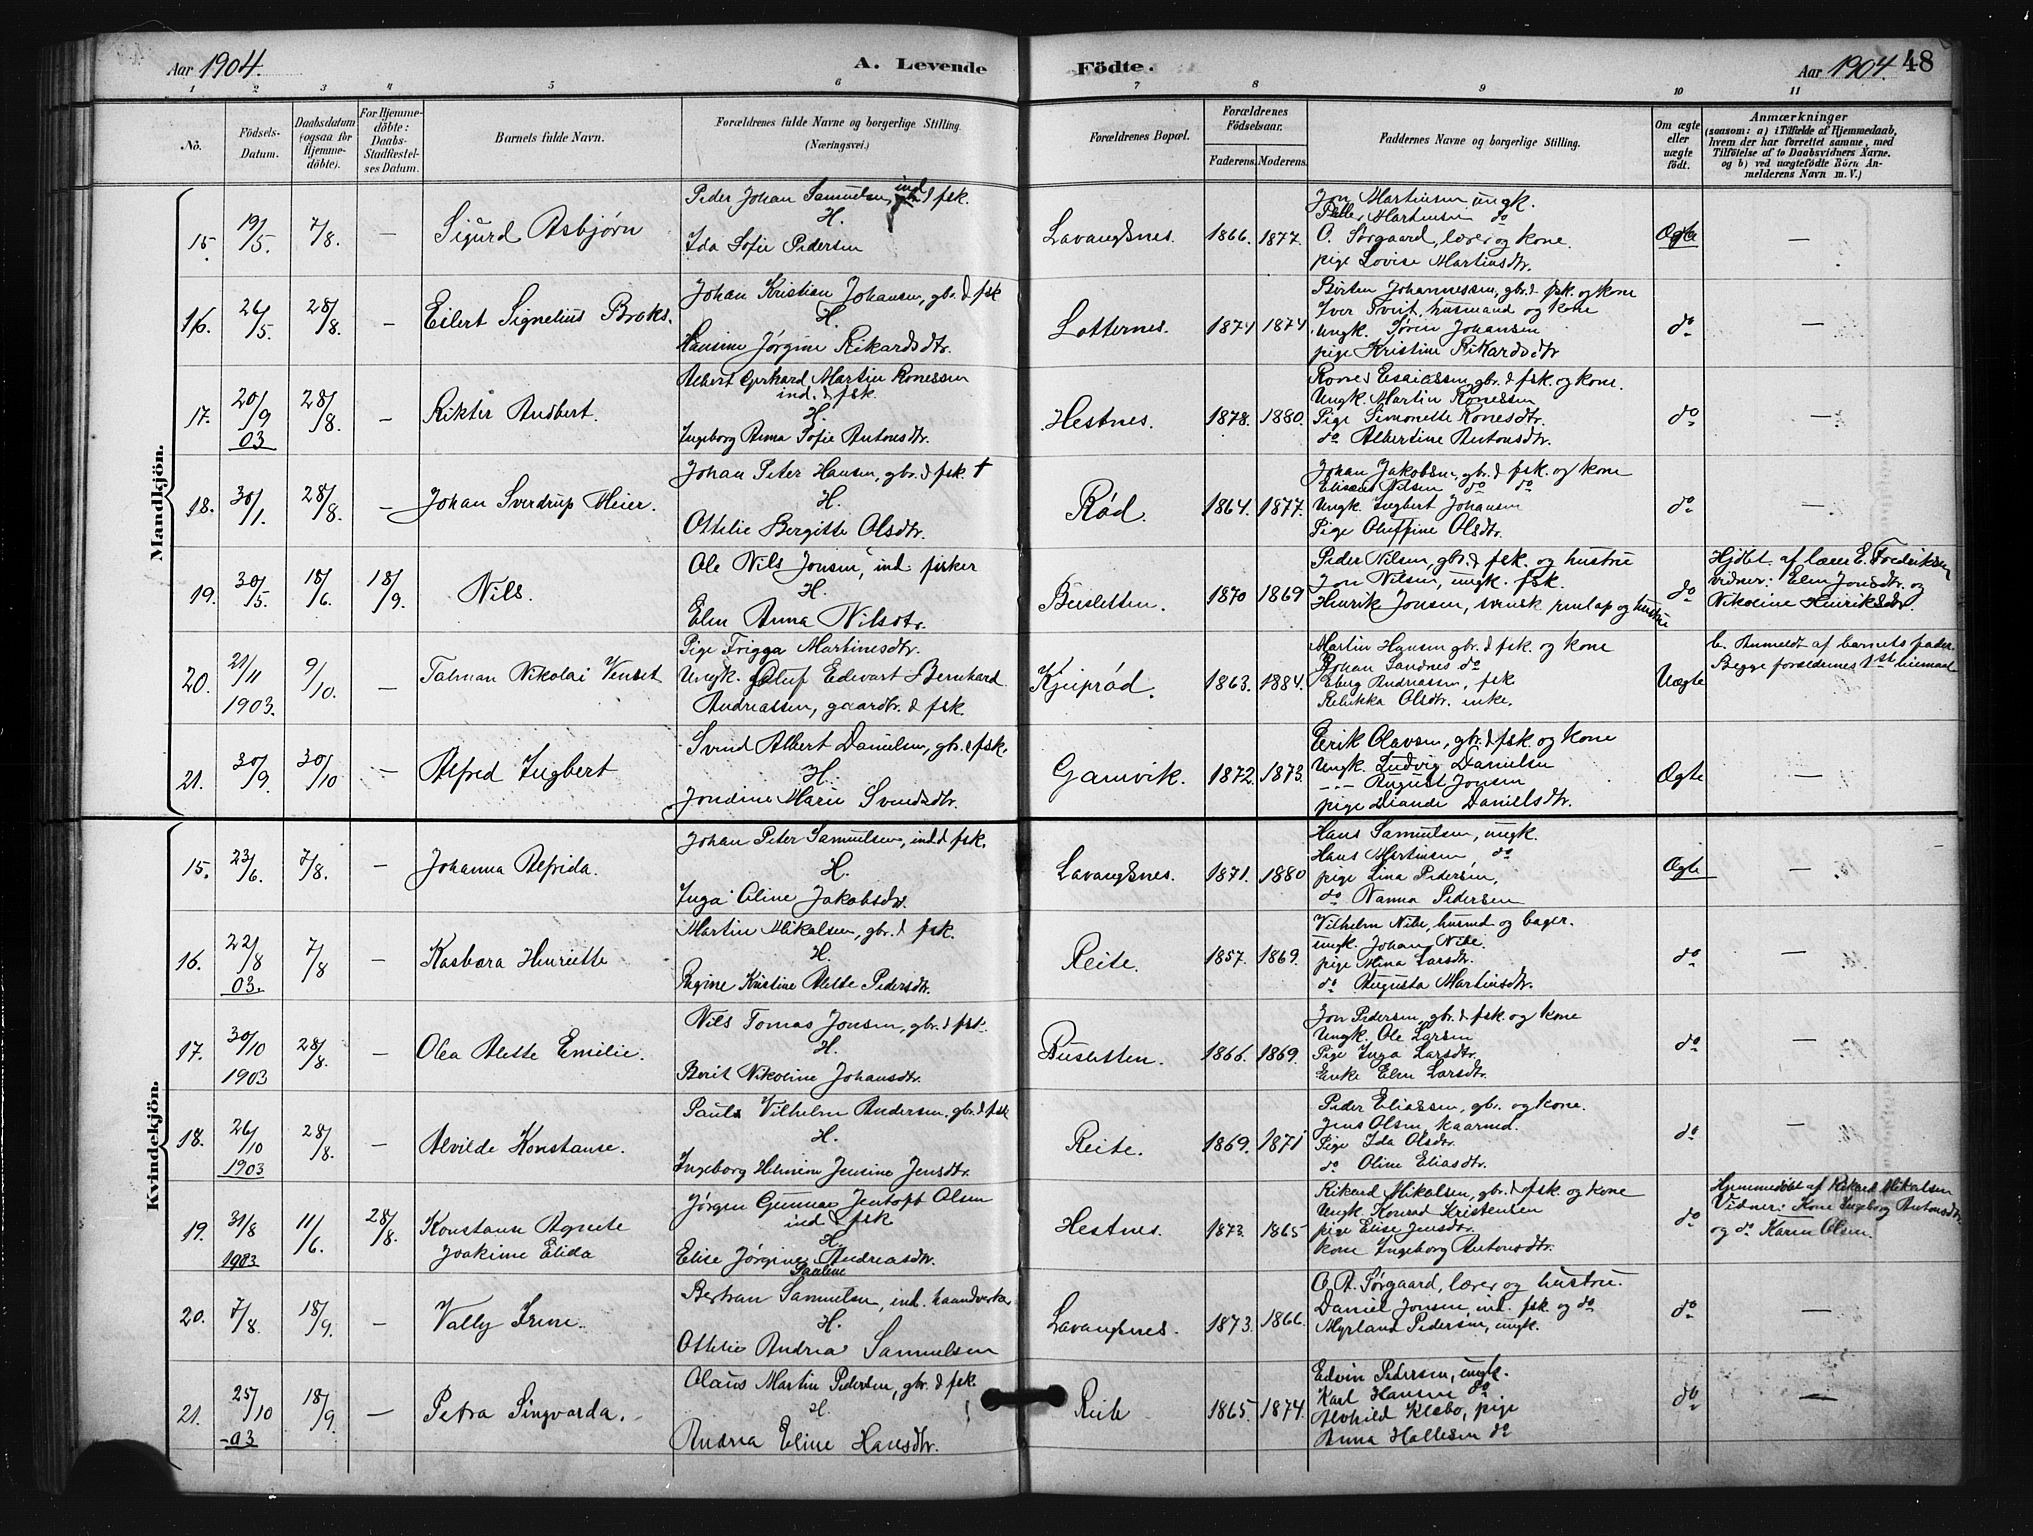 Aar 1904. A. Levende Födte. Aar 1904. 48
1 2 3 4 5 6 7 8 9 10 11
No. Födsels-Datum. Daabsdatum (ogsaa for Hjemmedöbte). For Hjemmedöbte: Daabs-Stadfæstelses Datum. Barnets fulde Navn. Forældrenes fulde Navne og borgerlige Stilling. (Næringsvei.) Forældrenes Bopæl. Forældrenes Födselsaar. Faderens. Moderens. Faddernes Navne og borgerlige Stilling. Om ægte eller uægte födt. Anmærkninger (saasom: a) i Tilfælde af Hjemmedaab, hvem der har forrettet samme, med Tilföielse af to Daabsvidners Navne. og b) ved uægtefödte Börn Anmelderens Navn m. V.)
Mandkjön.
15. 19/5. 7/8. — Sigurd Asbjørn
Peder Johan Samuelsen, ind & fsk.
H.
Ida Sofie Pedersen
Lavangsnes. 1866. 1877.
Jon Martinsen, ungk.
Martinsen do
O. Sørgaard, lærer og kone.
pige Lovise Martinsdtr.
Ægte —
16. 26/5. 28/8. — Eilert Signelius Broks.
Johan Kristian Johansen, gbr. & fsk
H.
Hansine Jørgine Rikardsdtr.
Lotternes. 1874 1874
Johannessen, gbr. & fsk. og kone
Iver husmand og kone
Ungk. Sören Johansen
pige Kristine Rikardsdtr
do —
17. 20/9 03 28/8. — Rikter Andbert.
Albert Gerhard Martin Ronessen
ind. & fsk
H.
Ingeborg Anna Sofie Antonsdtr.
Hestnes. 1878. 1880.
Rones Esaiassen, gbr. & fsk. og kone.
Ungk. Martin Ronessen
Pige Simonette Ronesdtr.
do Albertine Antonsdtr.
do —
18. 30/1. 28/8. — Johan Sverdrup Meier.
Johan Peter Hansen, gbr. & fsk †
H.
Ottelie Bergitte Olsdtr.
Rød. 1864. 1877.
Johan Jakobsen, gbr. & fsk. og kone
Elisæus Nilsen do do
Ungk. Ingbert Johansen
Pige Oluffine Olsdtr.
do —
19. 30/5. 18/6. 18/9. Nils.
Ole Nils Jonsen, ind. fisker
H.
Elen Anna Nilsdtr.
1870 1869
Peder Nilsen, gbr. & fsk. og hustru
Jon Nilsen, ungk. fsk.
Henrik Jonsen, svensk og hustru
do
Hjdbt. af lærer E. Fredriksen
vidner: Elen Jonsdtr. og
Nikoline Henriksdtr.
20. 21/11 1903. 9/10. — Talman Nikolai
Pige Frigga Martinesdtr.
Ungk. Oluf Edevart Bernhard
Andreassen, gaardbr. & fsk.
Kjeiprød. 1863. 1884.
Martin Hansen gbr. & fsk og kone
Johan Sandnes do
Eberg Andreassen, fsk
Rebekka Olsdtr. enke.
Uægte
b. Anmeldt af barnets fader.
Begge forældrenes 1ste leiermaal
21. 30/9. 30/10 — Alfred Ingbert
Svend Albert Danielsen, gbr. & fsk.
H.
Jondine Marie Svendsdtr.
Gamvik. 1872. 1873.
Erik Olavsen, gbr. & fsk. og kone
Ungk. Ludvig Danielsen
— August Jonsen
pige Danielsdtr.
Ægte —
Kvindekjön.
15. 23/6. 7/8. — Johanna Alfrida.
Johan Peter Samuelsen, ind & fsk.
H.
Inga Oline Jakobsdtr.
Lavangsnes. 1871. 1880
Hans Samuelsen, ungk.
Hans Martinsen, do
pige Lina Pedersen,
do Nanna Pedersen
Ægte —
16. 22/8 03. 7/8 — Kasbara Henriette
Martin Mikalsen, gbr. & fsk.
H.
Regine Kristine Alette Pedersdtr.
Reite. 1857. 1869.
Vilhelm Nibe, husmd og bager.
ungk. Johan Nibe.
pige Mina Larsdtr.
do Augusta Martinsdtr.
do —
17. 30/10 1903 28/8. — Olea Alette Emilie.
Nils Tomas Jonsen, gbr. & fsk.
H.
Berit Nikoline Johansdtr.
1866. 1869.
Jon Pedersen, gbr. & fsk. og kone
Ungk. Ole Larsen
Pige Inga Larsdtr.
Enke Elen Larsdtr.
do —
18. 26/10 1903 28/8. — Alvilde Konstanse.
Paul Vilhelm Andersen, gbr. & fsk
H.
Ingeborg Jensine Jensdtr.
Reite. 1869. 1871
Peder Eliassen, gbr. og kone.
Jens Olsen kaarmd.
Pige Ida Olsdtr.
do Oline Eliasdtr.
do —
19. 31/8 1903 11/6. 28/8. Konstanse Agnete
Joakime Elida
Jørgen Gunnar Jentoft Olsen
ind & fsk
H.
Elise Jørgine Andreasdtr.
Pauline
Hestnes. 1873. 1865
Rikard Mikalsen, gbr. & fsk. og kone
Ungk. Konrad Kristensen
pige Elise Jensdtr.
kone Ingeborg Antonsdtr.
do
Hjemmedøbt af Rikard Mikalsen
Vidner: Kone Ingeborg Antonsdtr.
og do Karen Olsen.
20. 7/8. 18/9. — Vally Irene.
Bertran Samuelsen, ind. haandverker
H.
Ottelie Andrea Samuelsen
Lavangsnes. 1873. 1866.
O. A. Sørgaard, lærer og hustru.
Daniel Jonsen, ind. fsk og do
Myrland Pedersen, ungk.
do —
21. 25/10 -03 18/9. — Petra Singvarda.
Olaus Martin Pedersen, gbr. & fsk.
H.
Andrea Eline Hansdtr.
Reite 1865. 1874.
Edvin Pedersen, ungk.
Karl Hansen do
Alvhild Klæbo, pige
Anna Hallesen do
do —